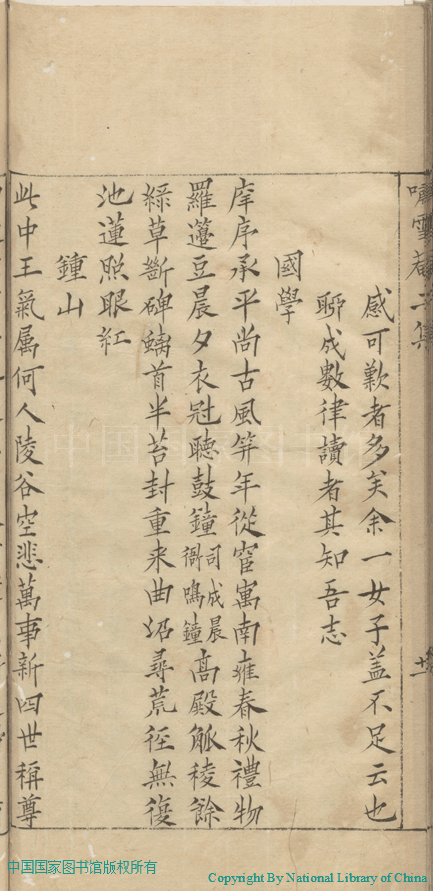 感可歎者多矣余一女子盖不足云也
聊成數律讀者其知吾志
國學
庠序承平尚古風筓年從宦寓南雍春秋禮物
羅籩豆晨夕衣冠聽鼓鐘司成晨衙鳴鐘高殿觚稜餘
綠草斷碑螭首半苔封重来曲沼尋荒徑無復
池蓮照眼紅
鍾山
此中王氣属何人陵谷空悲萬事新四世稱尊
中国国家图书馆版权所有
Copyright By National Library of China